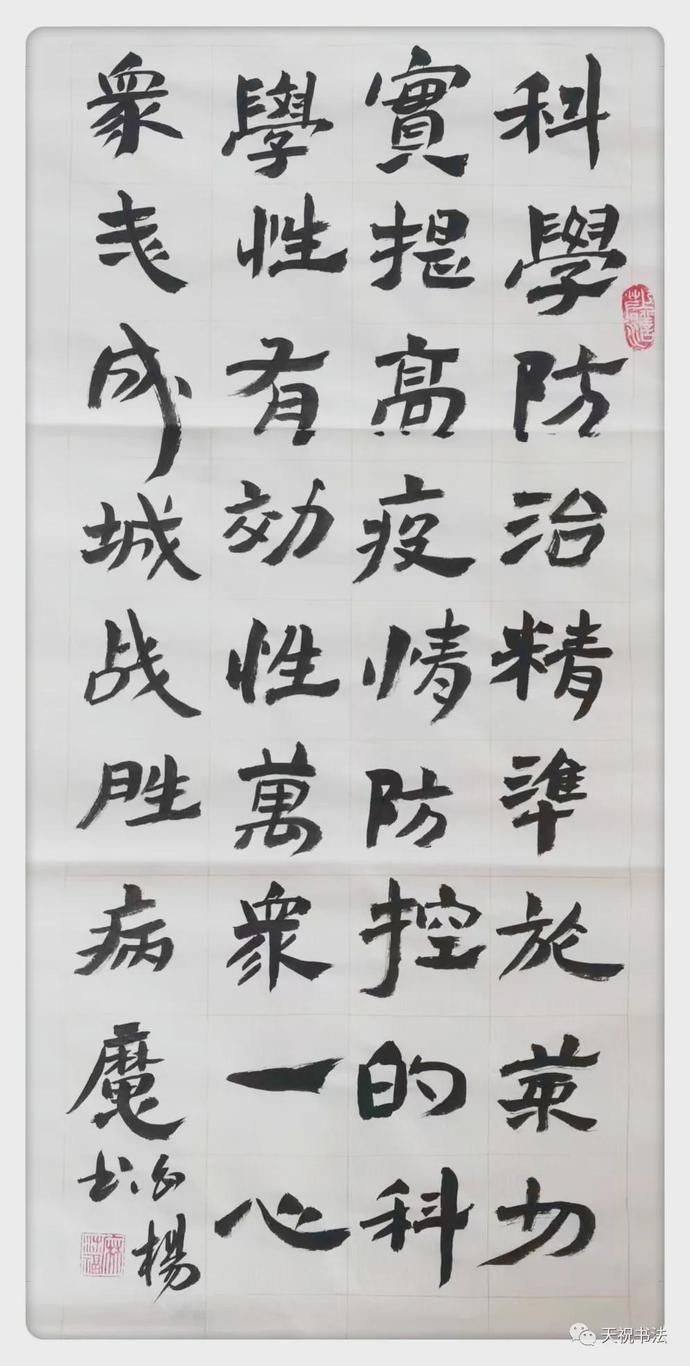 科學防治精準施策切
實提高疫情防控的科
學性有効性萬衆一心
衆志成城战胜病魔
楊
天祝书法